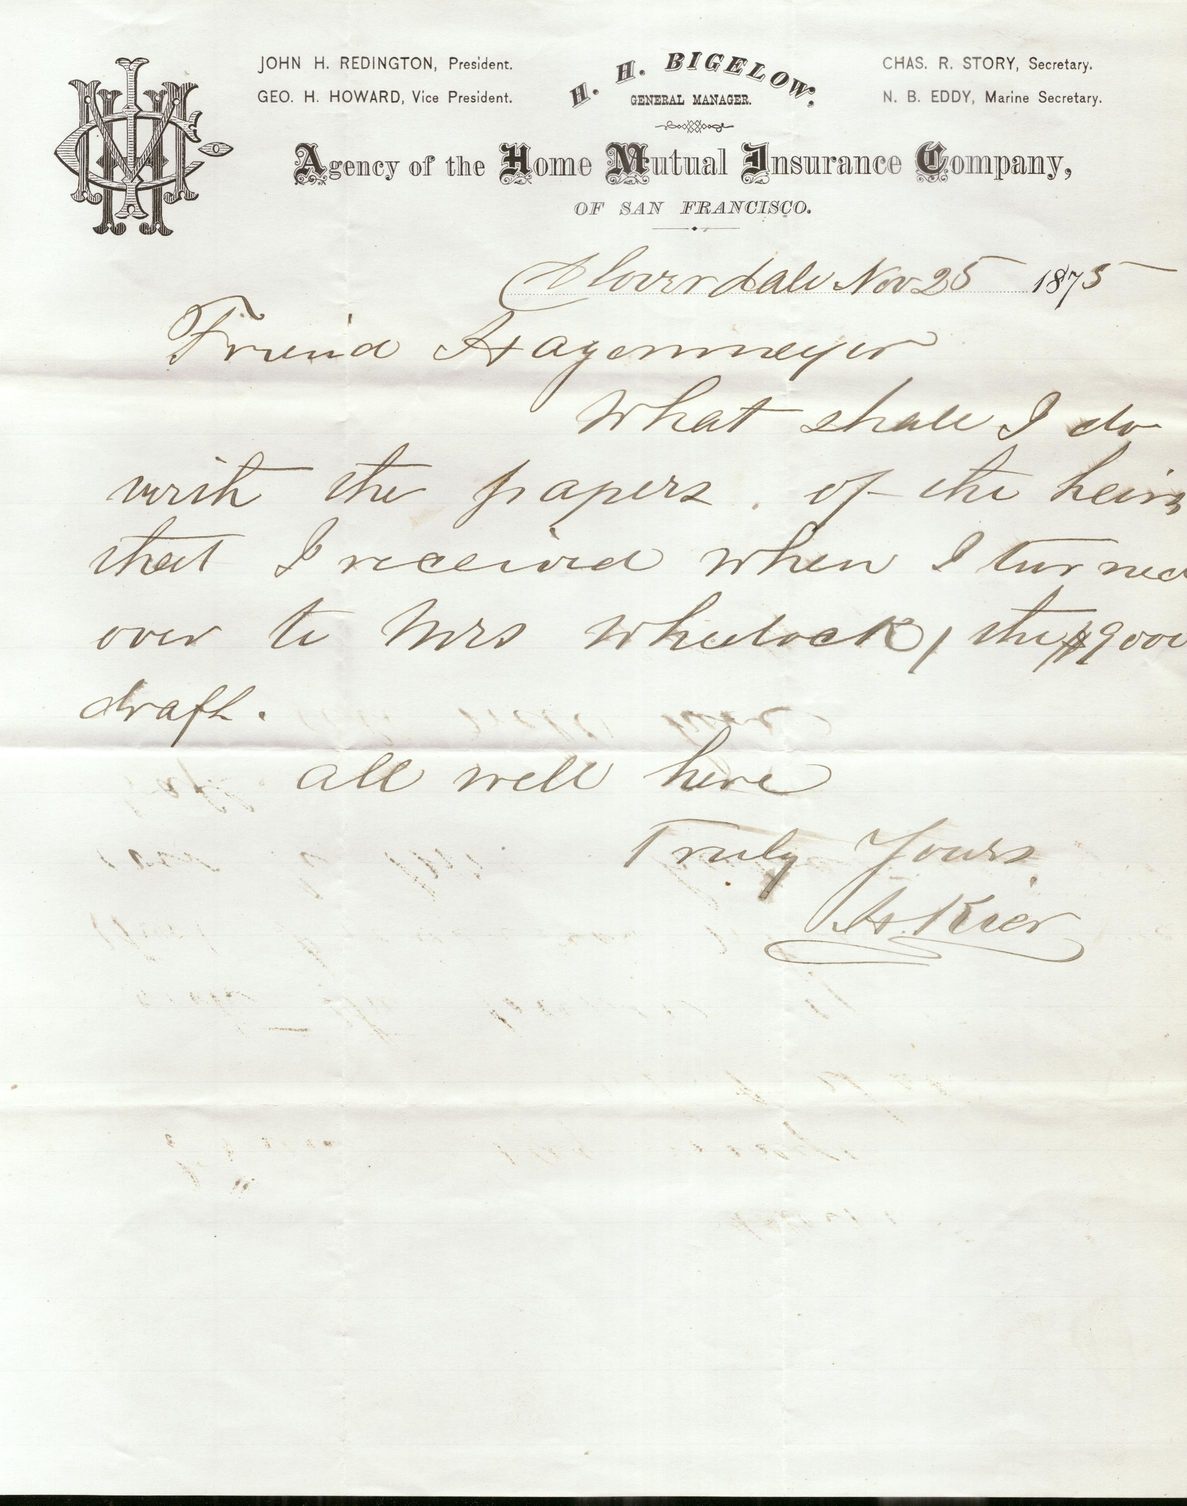 JOHN H. REDINGTON, President.
GEO. H. HOWARD, Vice President.
H. H. BIGELOW,
GENERAL MANAGER.
CHAS. R. STORY, Secretary.
N. B. EDDY, Marine Secretary.
Agency of the Home Mutual Insurance Company,
OF SAN FRANCISCO.
Cloverdale Nov 25 1875
Friend Hagenmeyer
What shall I do
with the papers . of the heirs
that I received when I turned
over to Mrs Wheelock, the $900
draft.
all well here
Truly Yours
H. Kier